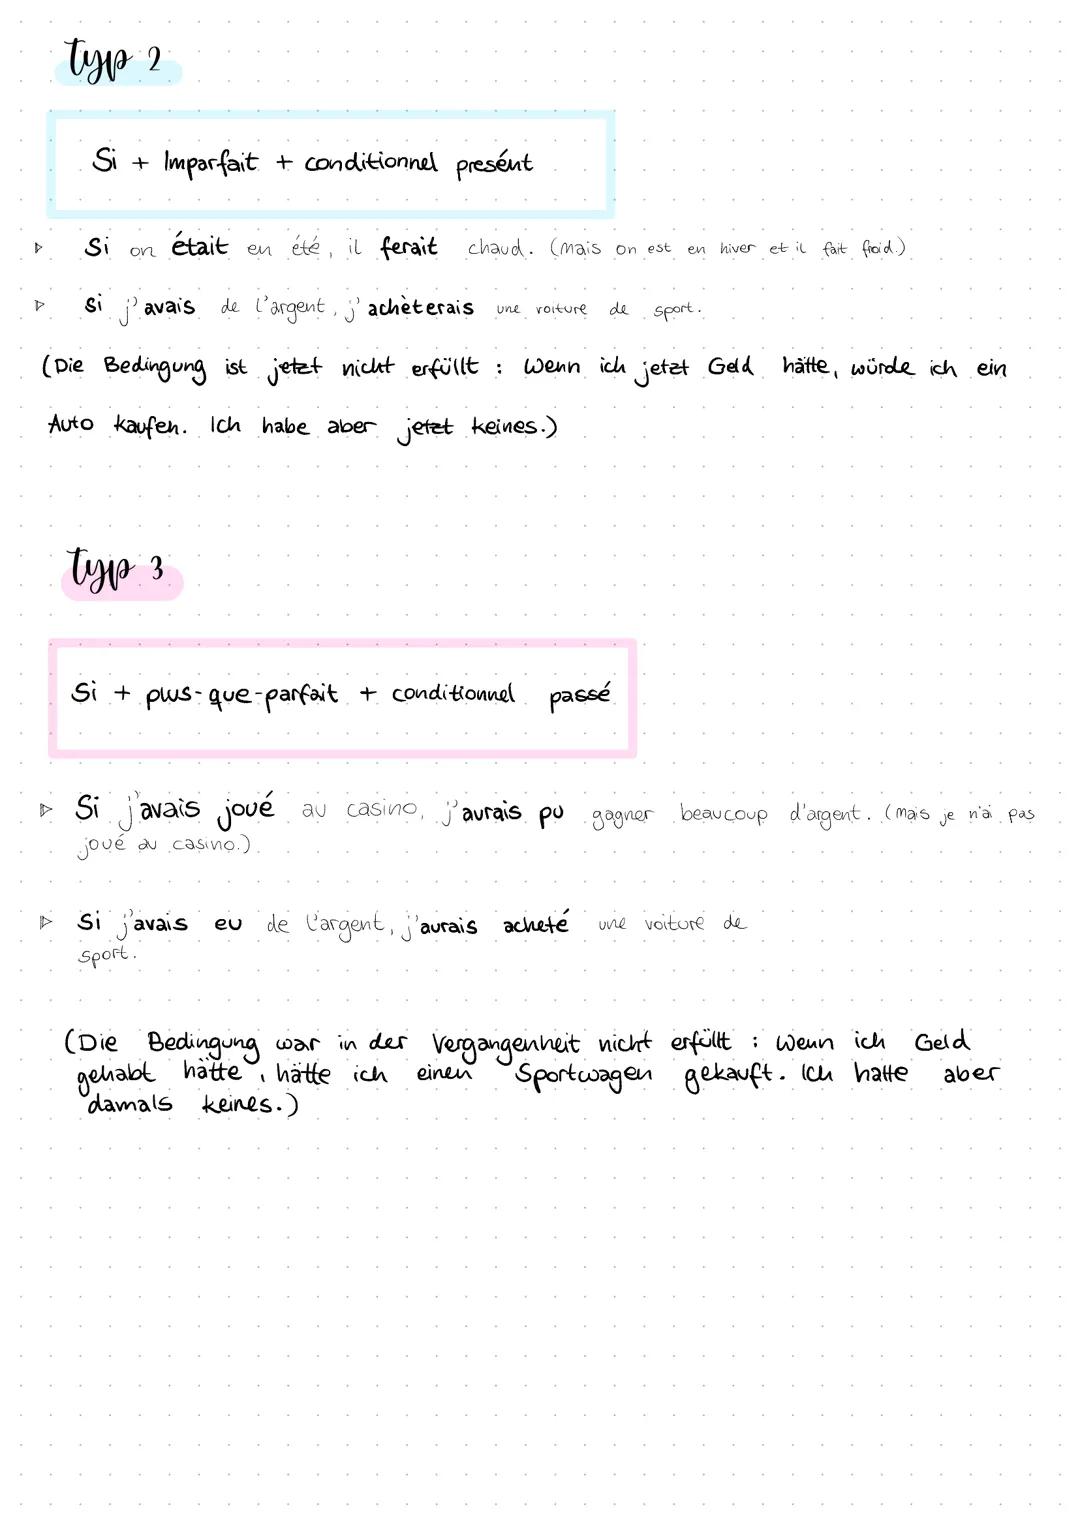 typ 2
Si + Imparfait + conditionnel presént
Si on était en été, il ferait chaud. (Mais on est en hiver et il fait froid.)
Si j'avais de l'argent, j'achèterais une voiture de sport.
(Die Bedingung ist jetzt nicht erfüllt : Wenn ich jetzt Geld hätte, würde ich ein
Auto kaufen. Ich habe aber jetzt keines.)
typ 3
Si + plus-que-parfait + conditionnel passé
Si j'avais joué au casino, j'aurais pu gagner beaucoup d'argent. (Mais je n'ai pas
joué au casino.)
Si j'avais eu de l'argent, j'aurais acheté une voiture de
sport.
(Die Bedingung war in der Vergangenheit nicht erfüllt : Wenn ich Geld
gehabt hätte, hätte ich einen Sportwagen gekauft. Ich hatte aber
damals keines.)